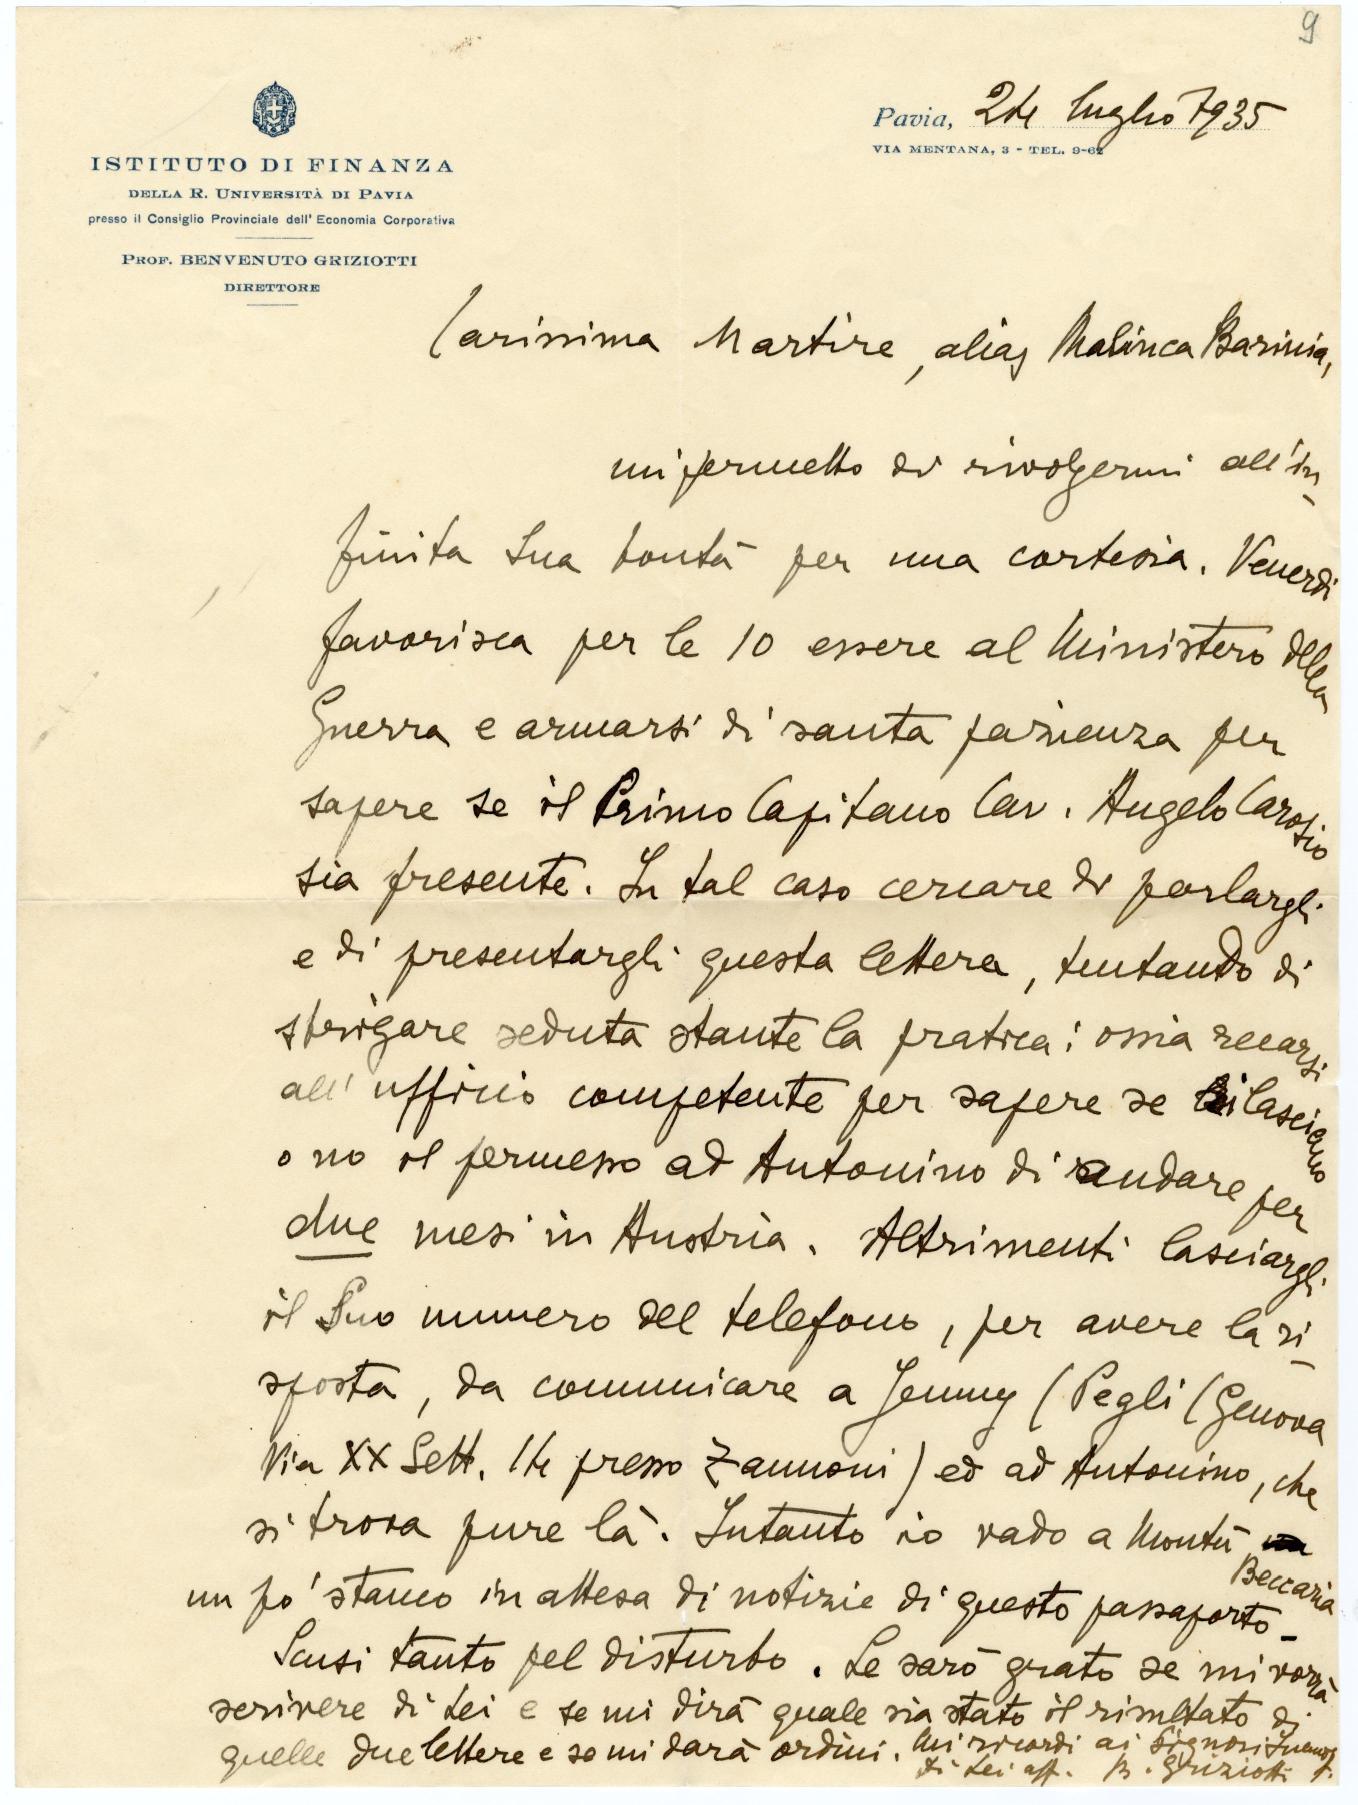 9
ISTITUTO DI FINANZA
DELLA R. UNIVERSITÀ DI PAVIA
presso il Consiglio Provinciale dell' Economia Corporativa
PROF. BENVENUTO GRIZIOTTI
DIRETTORE
Pavia, 24 luglio 1935
VIA MENTANA, 3 - TEL. 9-62
Carissima Martire, alias Malinca Barinia,
mi permetto di rivolgermi all'in-
finita Sua bontà per una cortesia. Venerdì
favorisca per le 10 essere al Ministero della
Guerra e armarsi di santa pazienza per
sapere se il Primo Capitano Cav. Angelo Carosio
sia presente. In tal caso cercare di parlargli
e di presentargli questa lettera, tentando di
sbrigare seduta stante la pratica: ossia recarsi
all'ufficio competente per sapere se rilasciano
o no il permesso ad Antonino di andare per
due mesi in Austria. Altrimenti lasciargli
il Suo numero del telefono, per avere la ri-
sposta, da comunicare a Jenny (Pegli (Genova
Via XX Sett. 14 presso Zannoni) ed ad Antonino, che
si trova pure là. Intanto io vado a Montù
Beccaria
un po' stanco in attesa di notizie di questo passaporto_
Scusi tanto pel disturbo. Le sarò grato se mi vorrà
scrivere di Lei e se mi dirà quale sia stato il risultato di
quelle due lettere e se mi darà ordini. Mi ricordi ai Signori
di Lei aff. B. Griziotti